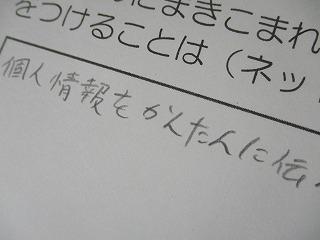 にまきこまれ
をつけることは（ネッ
個人情報をかんたんに伝